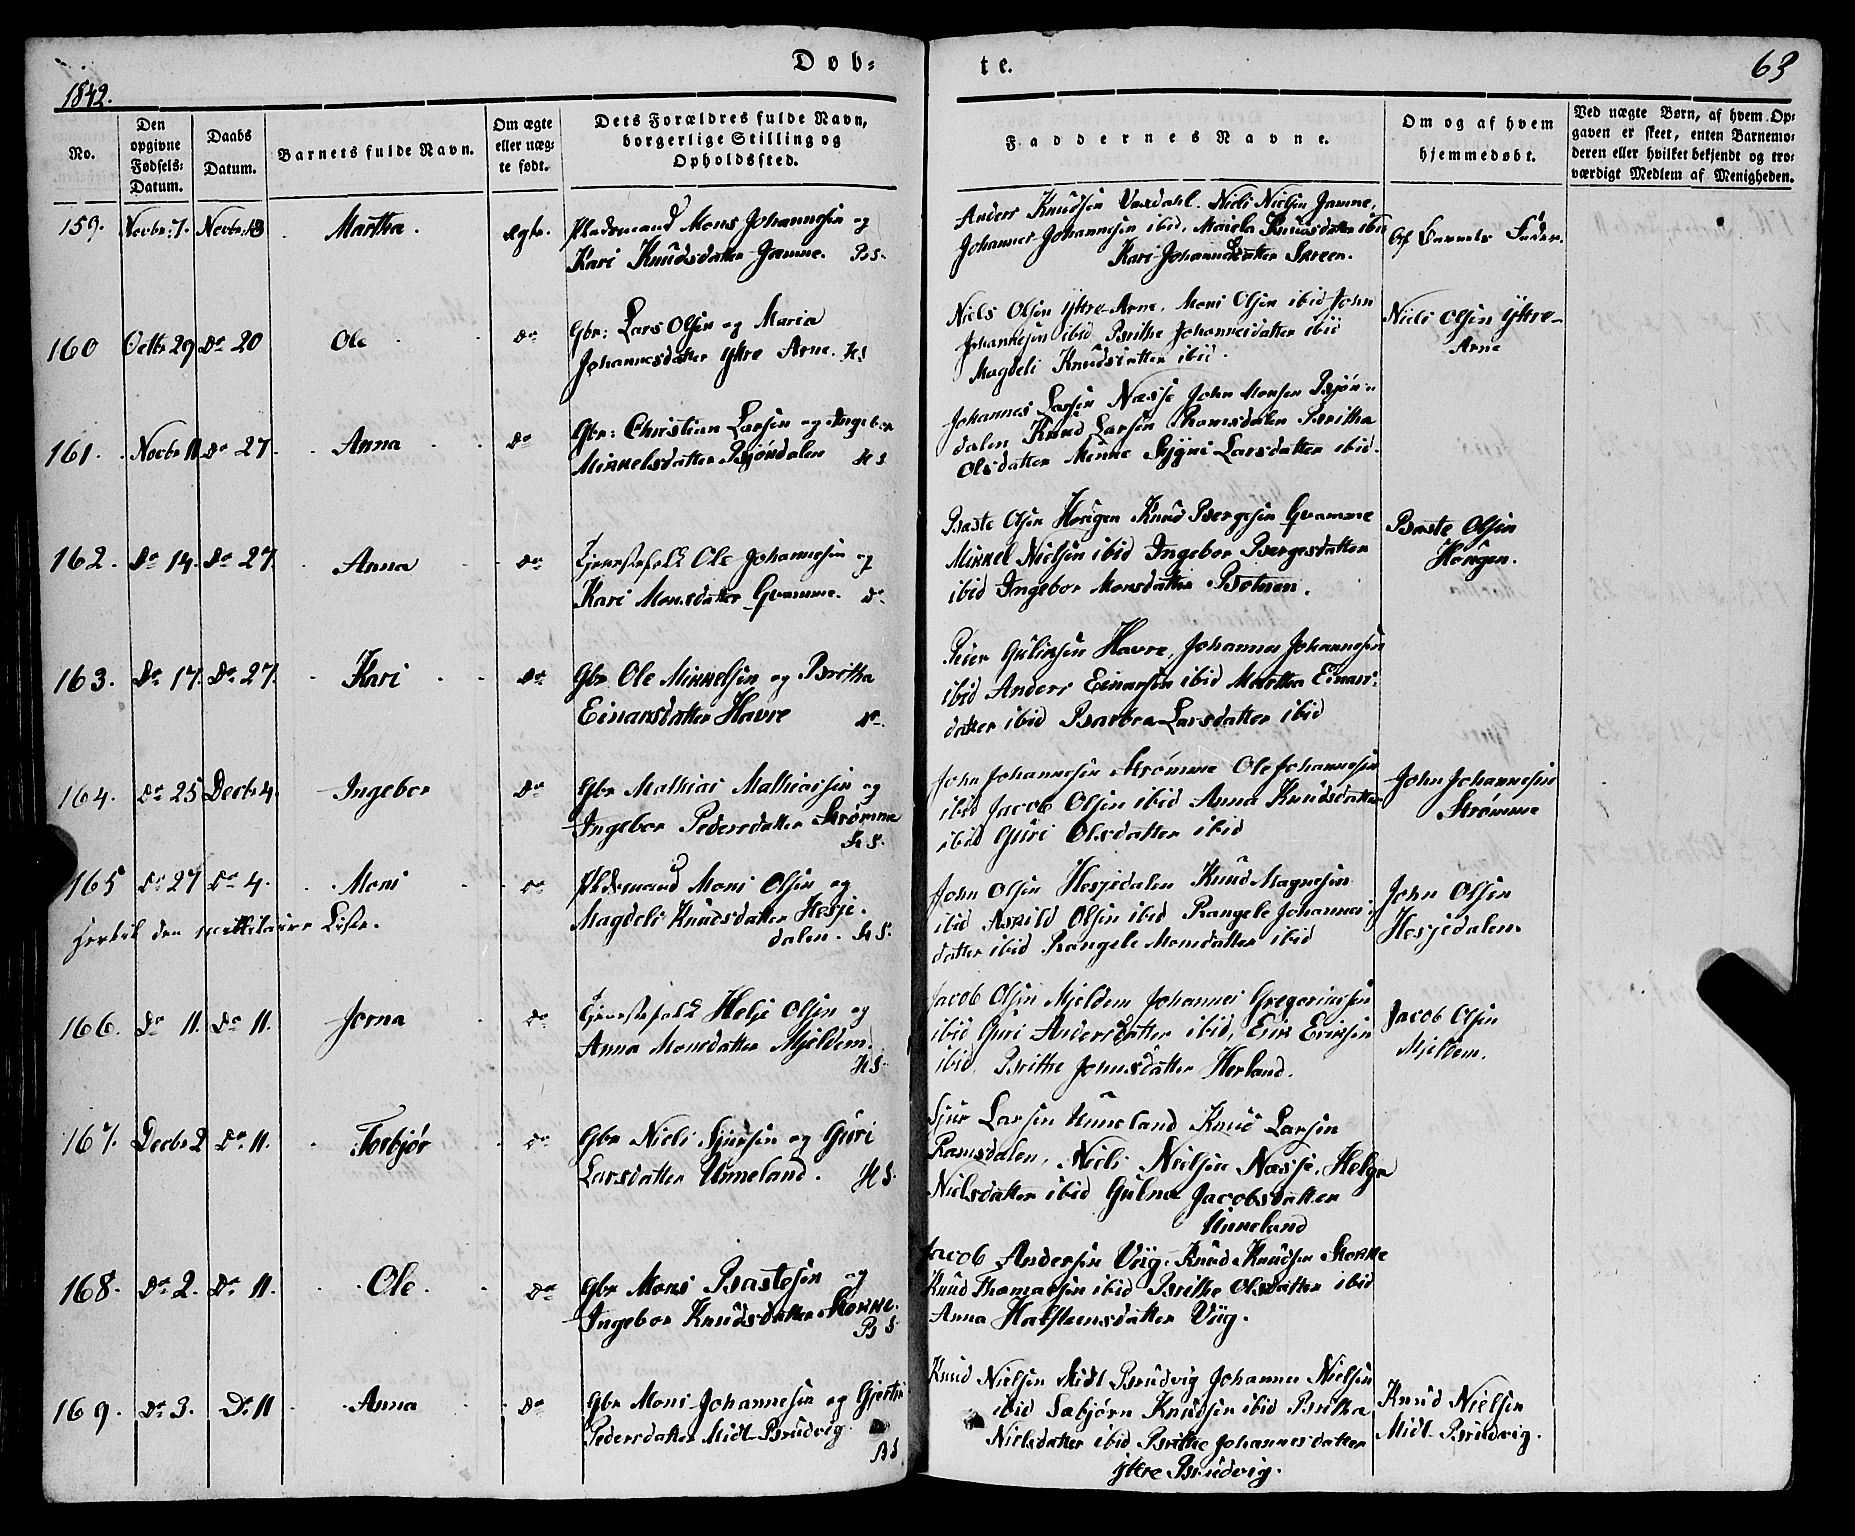 Døb-
te.
63
1842.
No.
Den opgivne Fødsels-Datum.
Daabs Datum.
Barnets fulde Navn.
Om ægte eller uægte født.
Dets Forældres fulde Navn, borgerlige Stilling og Opholdssted.
Faddernes Navne.
Om og af hvem hjemmedøbt.
Ved uægte Børn, af hvem Opgaven er skeet, enten Barnemoderen eller hvilket bekjendt og troværdigt Medlem af Menigheden.
159. Novbr: 7. Novbr: 13 Martha. ægte.
Pladsmand Mons Johannesen og
Kari Knudsdatter Jamne. B S.
Anders Knudsen Unsdahl. Niels Nielsen Jamne,
Johannes Johannesen ibid, Knudsdatter ibid
Kari Johannesdatter
Af Barnets Fader.
160 Octbr 29 Do 20 Ole Do
Gbr: Lars Olsen og Maria
Johannesdatter Yttre Arne. H S
Niels Olsen Yttre-Arne, Mons Olsen ibid John
Johannesen ibid Brithe Johannesdatter ibid
Magdeli Knudsdatter ibid.
Niels Olsen Yttre-
Arne
161. Novbr 11 Do 27 Anna Do
Gbr: Christian Larsen og Ingebor
Mikkelsdatter Bjøndalen H S
Johannes Larsen Næsse John Monsen Bjøn-
dalen Knud Larsen Ramsdalen Britha
Olsdatter Menne Sygni Larsdatter ibid.
162. Do 14. Do 27 Anna Do
Tjenestefolk Ole Johannesen og
Kari Monsdatter Gvamme. Do
Baste Olsen Hougen Knud Bergesen Gvamme
Mikkel Nielsen ibid Ingebor Bergesdatter
ibid Ingebor Monsdatter Botnen.
Baste Olsen
Hougen.
163. Do 17. Do 27. Kari Do
Gbr Ole Mikkelsen og Britha
Einarsdatter Havre Do
Peier Gulliksen Havre, Johannes Johannesen
ibid Anders Einarsen ibid Martha Einars-
datter ibid Barbra Larsdatter ibid
164. Do 25 Decbr 4. Ingebor Do
Gbr Mathias Mathiassen og
Ingebor Pedersdatter Strømme
H S.
John Johannesen Strømme Ole Johannesen
ibid Jacob Olsen ibid Anna Knudsdatter
ibid Guri Olsdatter ibid
John Johannesen
Strømme
165 Do 27 Do 4. Mons Do
Pladsmand Mons Olsen og
Magdeli Knudsdatter Hesje-
dalen. H S.
hertil den militaire Liste.
John Olsen Hesjedalen Knud Magnesen
ibid Askild Olsen ibid Rangele Johannes-
datter ibid Rangele Monsdatter ibid
John Olsen
Hesjedalen
166. Do 11. Do 11. Jorna Do
Tjenestefolk Helje Olsen og
Anna Monsdatter Mjeldem.
H S.
Jacob Olsen Mjeldem Johannes Gregoriusen
ibid Guri Andersdatter ibid, Erik Eriksen
ibid. Brithe Johnsdatter Herland.
Jacob Olsen
Mjeldem.
167. Decbr 2 Do 11. Torbjør Do
Gbr Niels Sjursen og Guri
Larsdatter Unneland. H S.
Sjur Larsen Unneland Knud Larsen
Ramsdalen, Niels Nielsen Næsse, Helga
Nielsdatter ibid Gulna Jacobsdatter
Unneland
168. Do 2. Do 11. Ole. Do
Gbr Mons Bastesen og
Ingebor Knudsdatter Mokke.
B S
Jacob Andersen Viig. Knud Knudsen Mokke
Knud Thomassen ibid Brithe Olsdatter ibid
Anna Halsteensdatter Viig.
169. Do 3. Do 11 Anna Do
Gbr Mons Johannesen og Gjertru
Pedersdatter Midt-Brudvig.
B S
Knud Nielsen Midt Brudvig Johannes Nielsen
ibid Sæbjørn Knudsen ibid Britha
Nielsdatter ibid Brithe Johannesdatter
Yttre Brudvig.
Knud Nielsen
Midt-Brudvig.